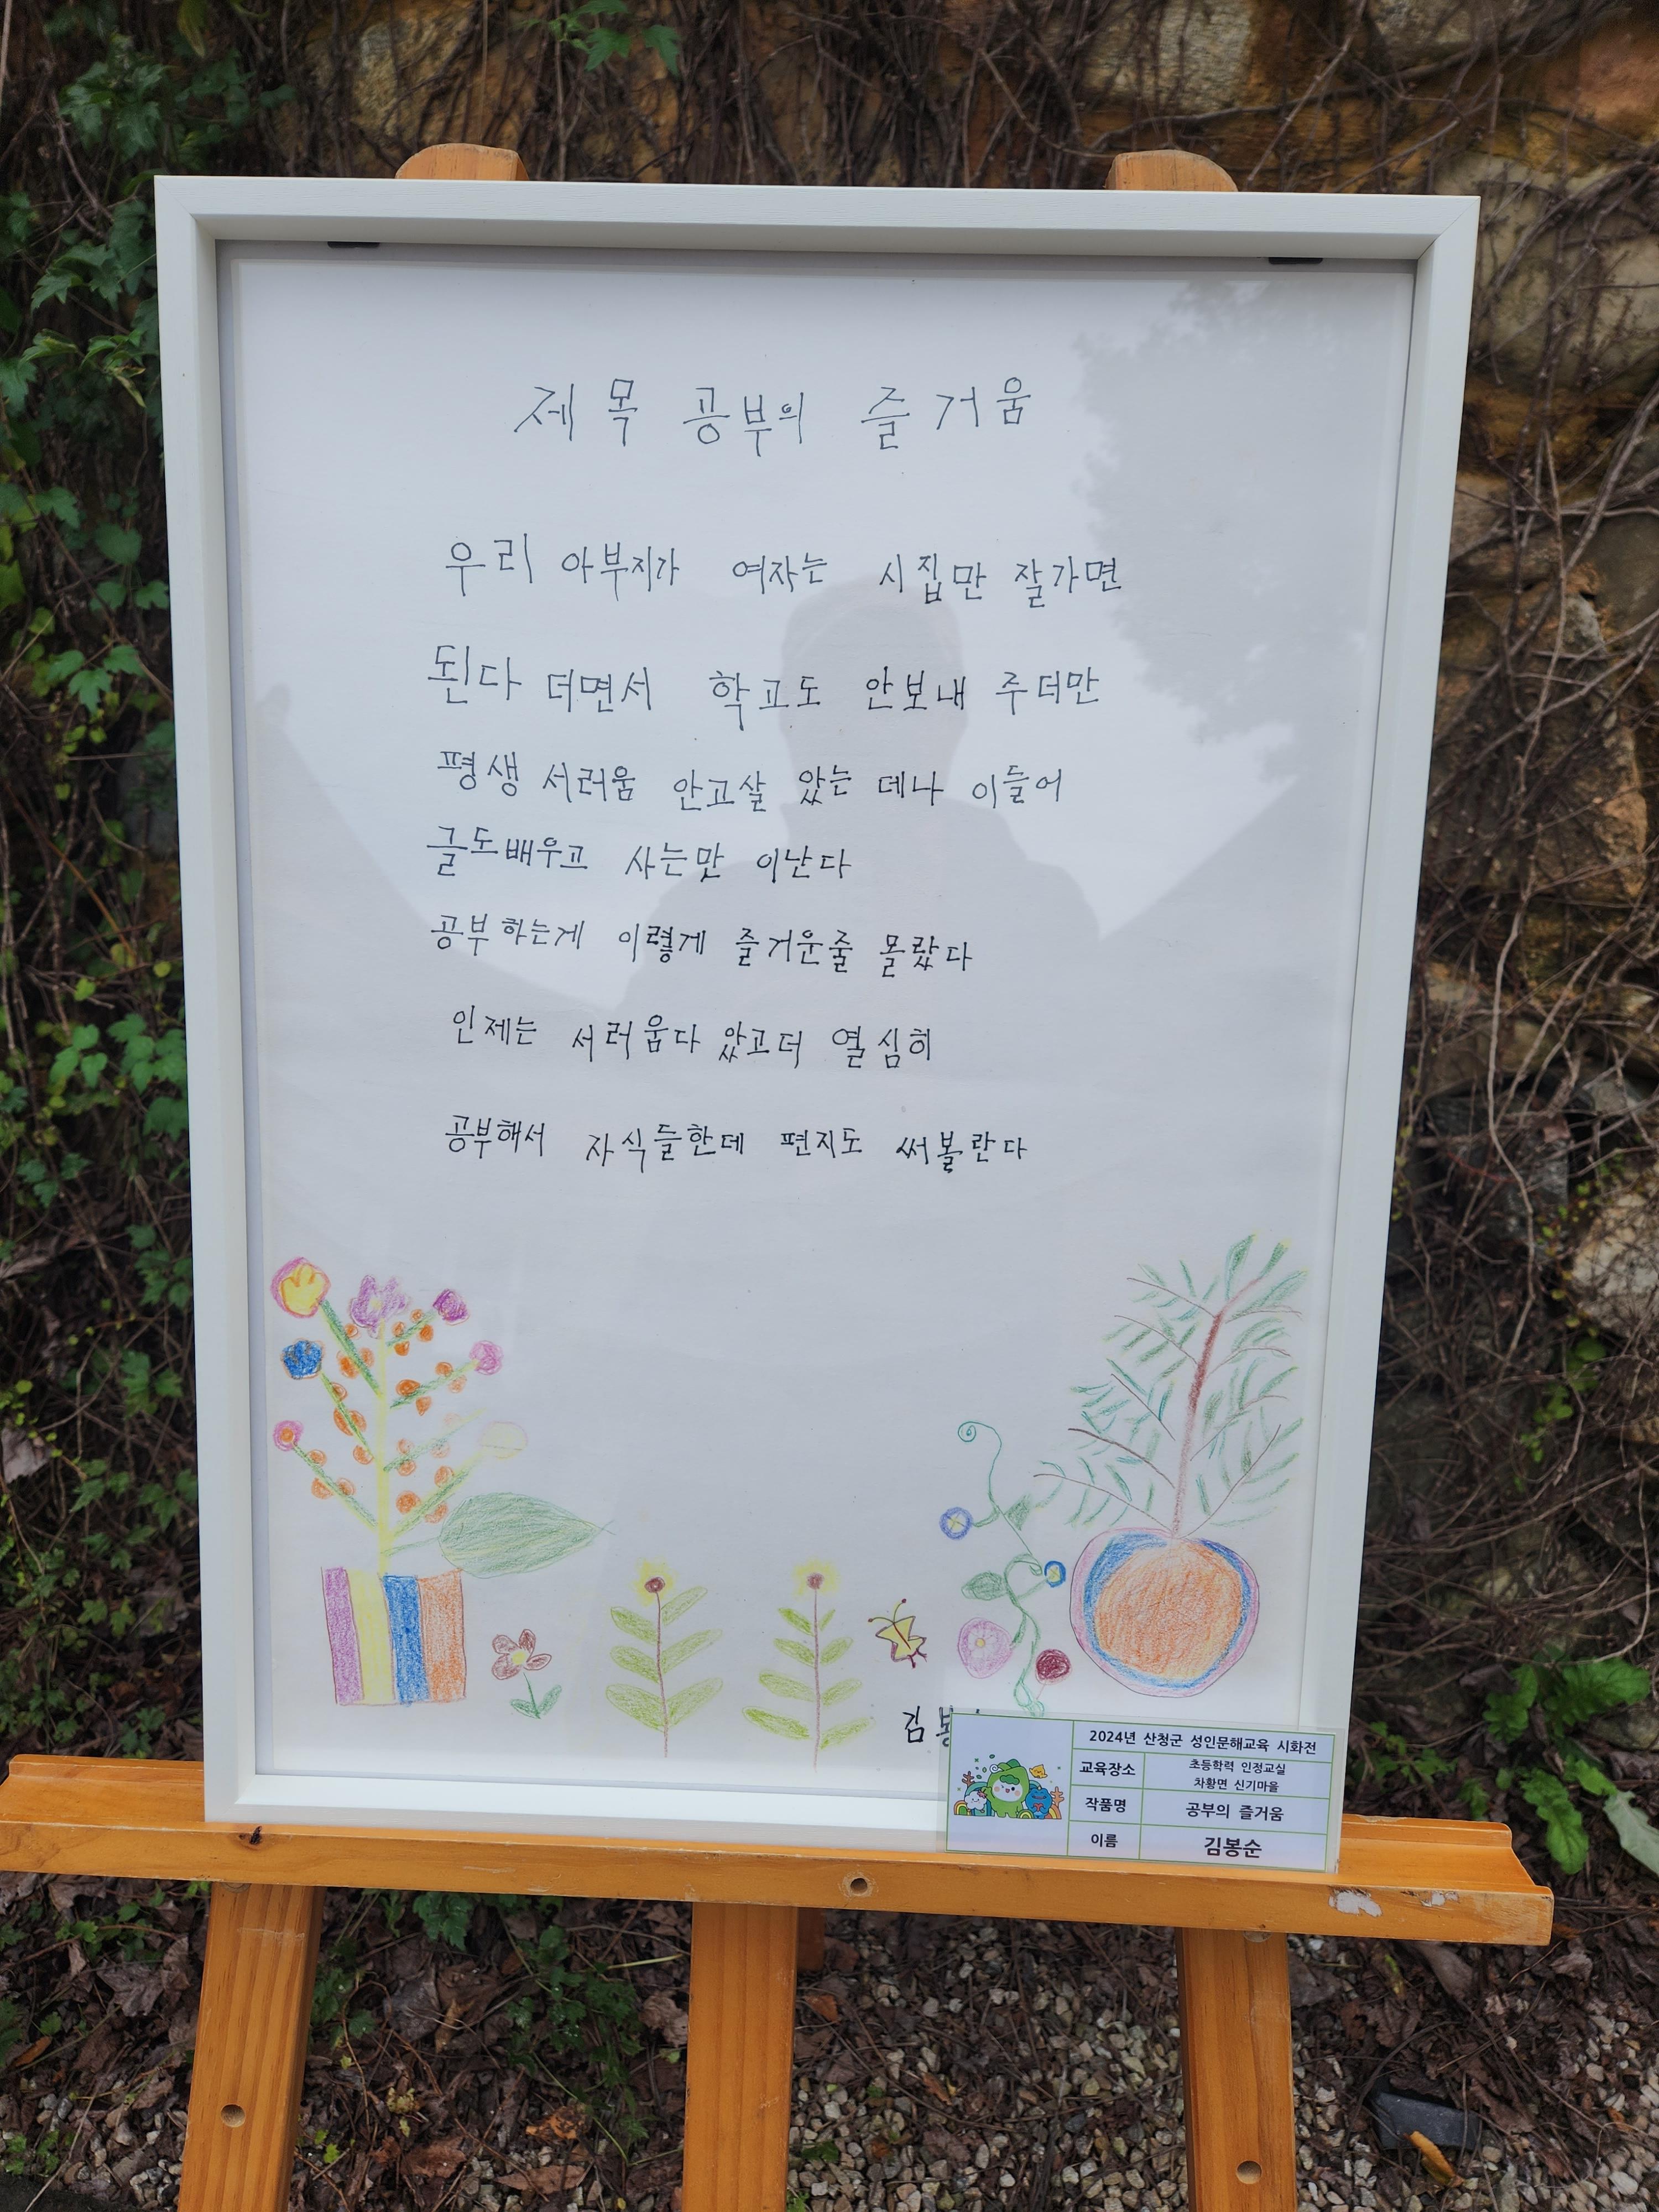 제목 공부의 즐거움
우리 아부지가 여자는 시집만 잘가면
된다 더면서 학교도 안보내 주더만
평생 서러움 안고살 았는 데나 이들어
글도배우고 사는맛 이난다
공부하는게 이렇게 즐거운줄 몰랐다
인제는 서러움다 았고더 열심히
공부해서 자식들한데 편지도 써볼란다
김봉
2024년 산청군 성인문해교육 시화전
교육장소 초등학력 인정교실
차황면 신기마을
작품명 공부의 즐거움
이름 김봉순